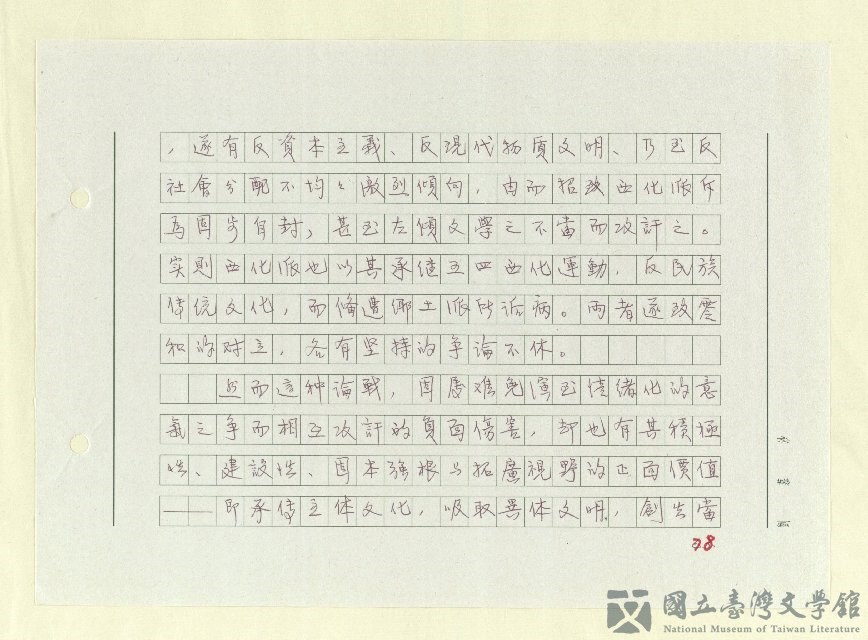 ，遂有反資本主義、反現代物质文明、乃至反
社會分配不均之激烈傾向，由而招致西化派斥
為固步自封，甚至左傾文學之不當而攻訐之。
实則西化派也以其承继五四西化運動，反民族
传统文化，而偹遭鄉土派所诟病。两者遂政
和的对立，各有坚持的争论不休。
然而这种論戰，固属难免演至情绪化的意
氣之争而相互攻訐的負面傷害，却也有其積極
性、建設性、固本強根与拓廣視野的正面價值
——即承传主体文化，吸取異体文明，創出當
78
文學館
國立臺灣文學館
National Museum of Taiwan Literature